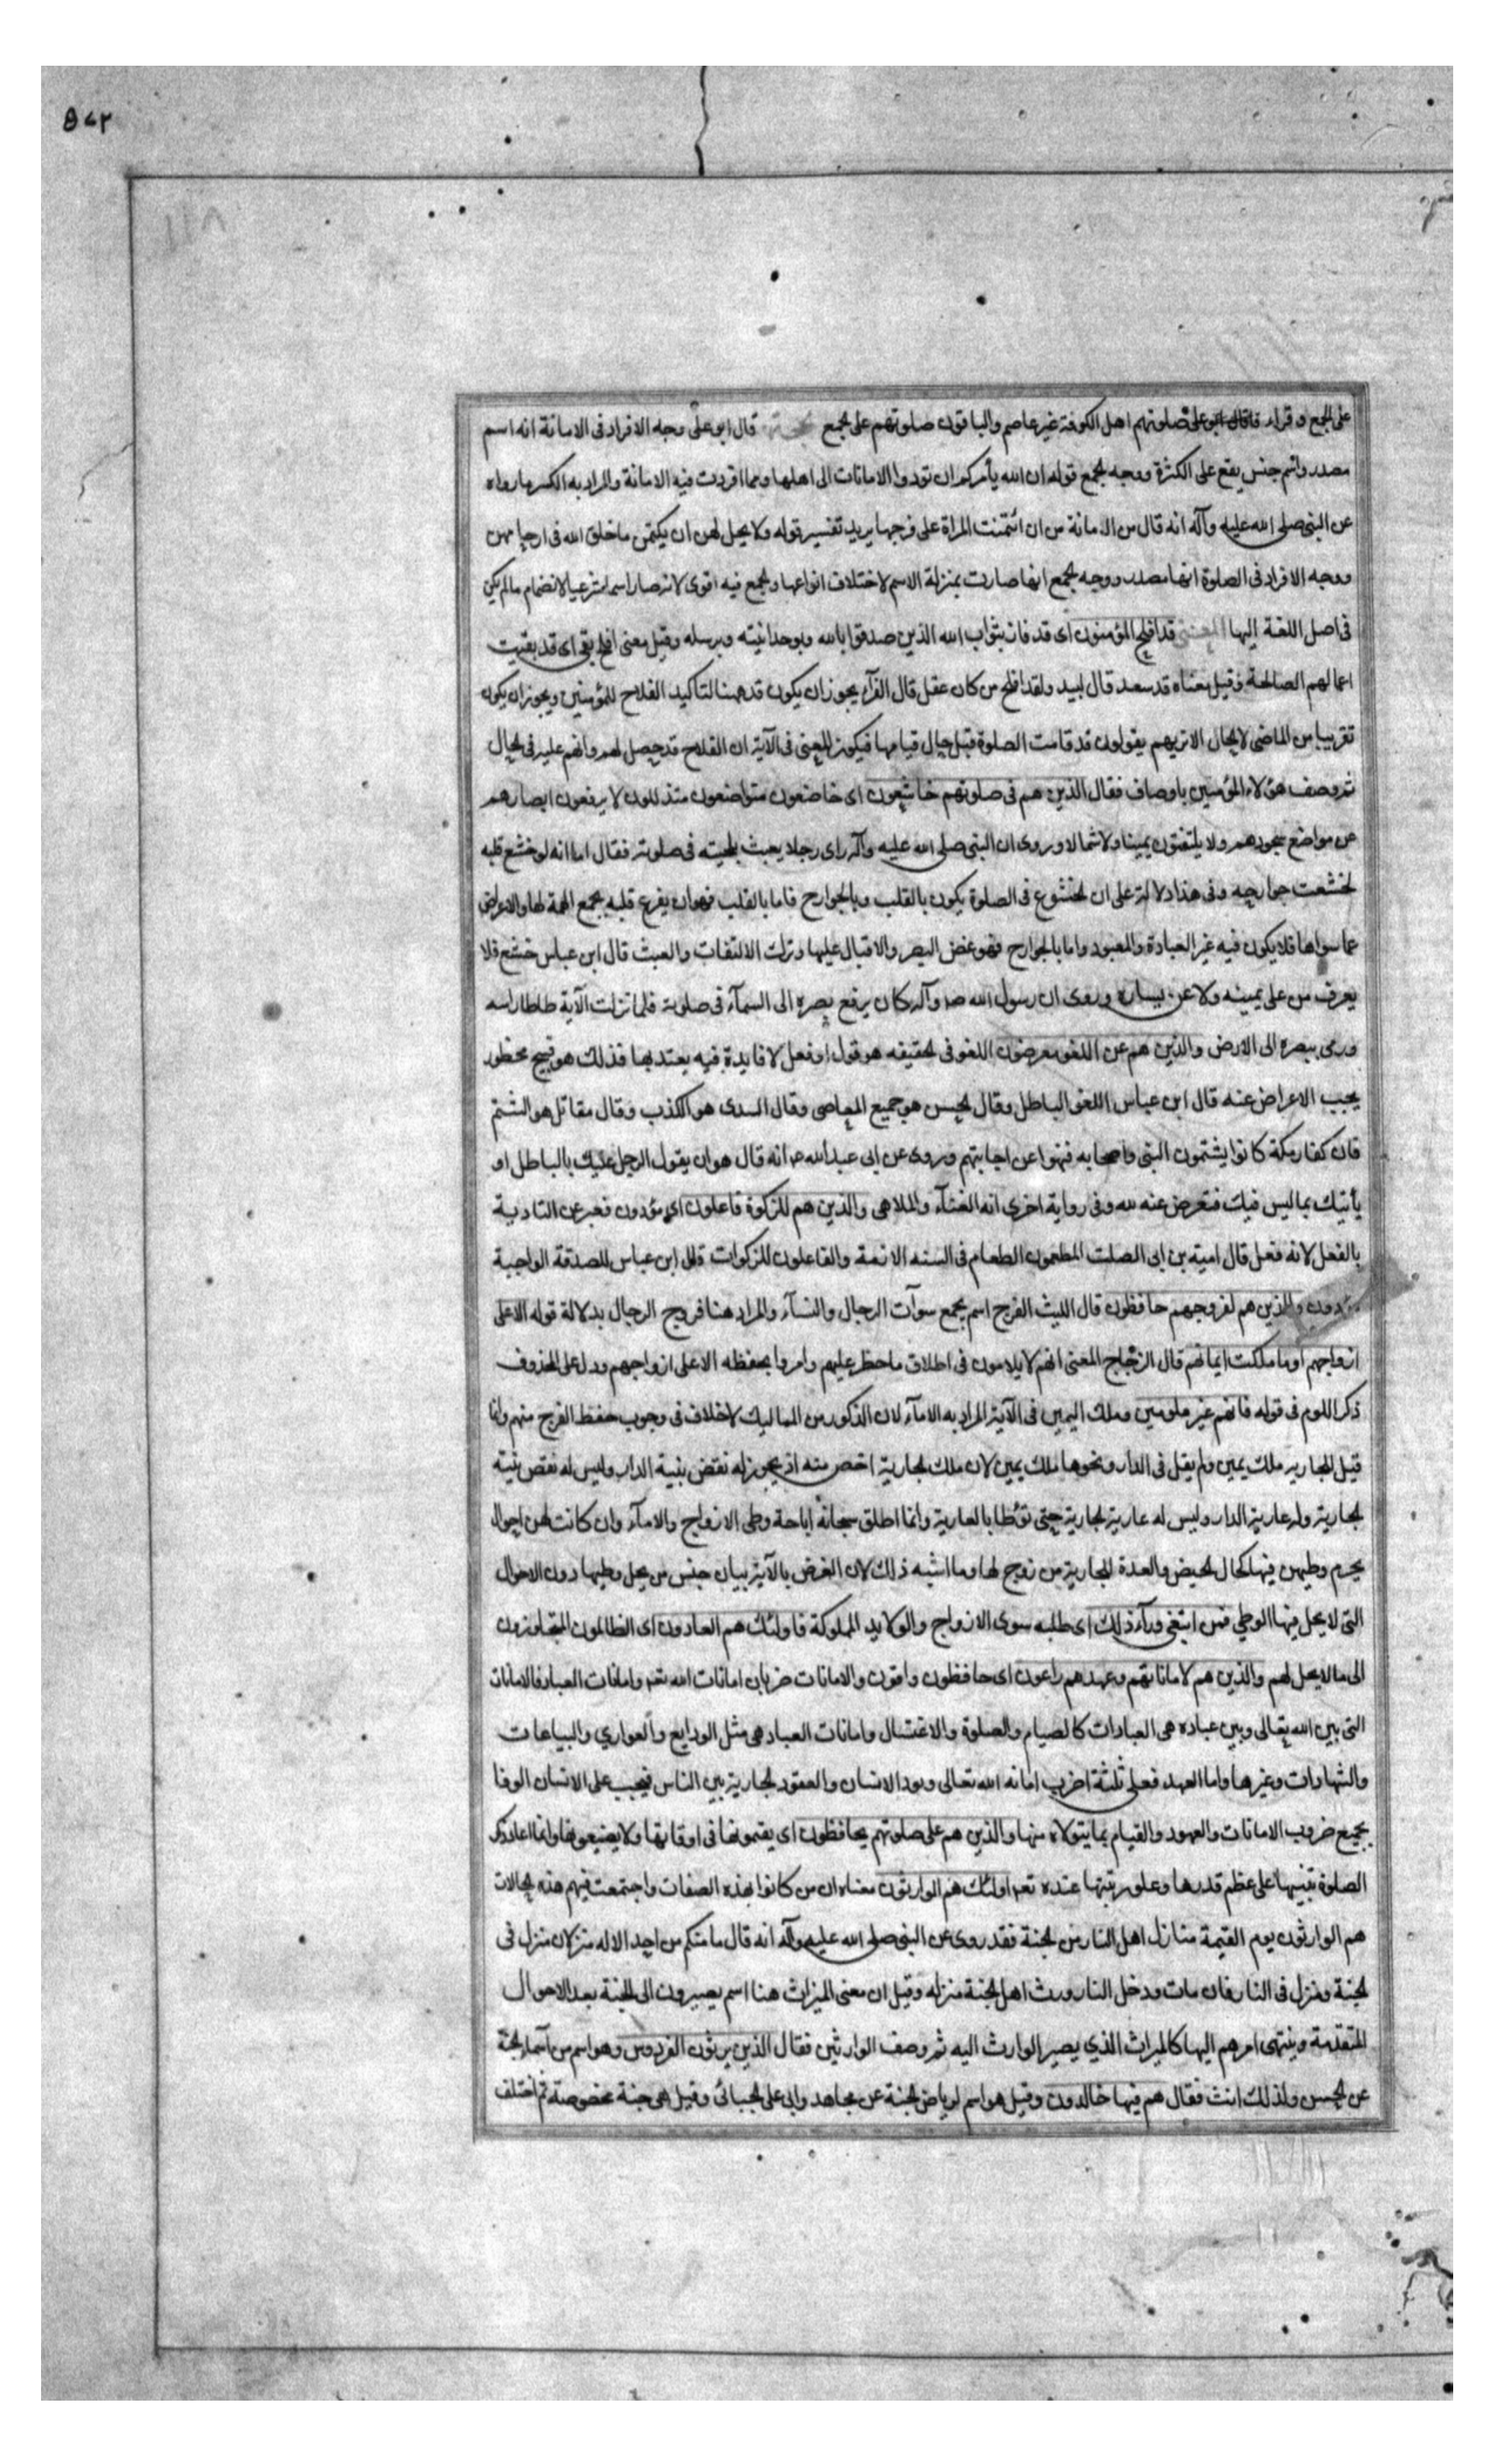 ٥٧٢
على الجمع وقراء صلوتهم اهل الكوفة غير عاصم والباقون صلوتهم على الجمع قال ابو على وجه الافراد فى الامانة انه اسم
مصدر واسم جنس يقع على الكثرة ووجه الجمع قوله ان الله يأمركم ان تودوا الامانات الى اهلها ومما افردت فيه الامانة والمراد به الكسر ما رواه
عن النبى صلى الله عليه وآله انه قال من الامانة من ان ائتمنت المراة على فرجها يريد تفسير قوله ولا يحل لهن ان يكتمن ما خلق الله فى ارحامهن
ووجه الافراد فى الصلوة انها مصدر ووجه الجمع انها صارت بمنزلة الاسم لاختلاف انواعها والجمع فيه اقوى لانه صار اسما شرعيا لانضمام ما لم يكن
فى اصل اللغة اليها المعنى قد افلح المؤمنون اى قد فاز بثواب الله الذين صدقوا بالله وبوحدانيته وبرسله وقيل معنى افلح بقى اى قد بقيت
اعمالهم الصالحة وقيل معناه قد سعد قال لبيد ولقد افلح من كان عقل قال الفرآء يجوز ان يكون قد ههنا لتاكيد الفلاح للمؤمنين ويجوز ان يكون
تقريبا من الماضى لا لحال الا تريهم يقولون قد قامت الصلوة قبل حال قيامها فيكون المعنى فى الآية ان الفلاح قد حصل لهم وانهم عليه فى الحال
ثم وصف هؤلاء المؤمنين باوصاف فقال الذين هم فى صلوتهم خاشعون اى خاضعون متواضعون متذللون لا يرفعون ابصارهم
عن مواضع سجودهم ولا يلتفتون يمينا ولا شمالا وروى ان النبى صلى الله عليه وآله راى رجلا يعبث بلحيته فى صلوته فقال اما انه لو خشع قلبه
لخشعت جوارحه وفى هذا دلالة على ان الخشوع فى الصلوة يكون بالقلب وبالجوارح فاما بالقلب فهو ان يفرغ قلبه بجمع الهمة لها والاعراض
عما سواها فلا يكون فيه غير العبادة والمعبود واما بالجوارح فهو غض البصر والاقبال عليها وترك الالتفات والعبث قال ابن عباس خشع فلا
يعرف من على يمينه ولا عن يساره وروى ان رسول الله ص وآله كان يرفع بصره الى السمآء فى صلوته فلما نزلت الآية طاطا راسه
ورمى ببصره الى الارض والذين هم عن اللغو معرضون اللغو فى الحقيقه هو قول او فعل لا فايدة فيه يعتد بها فذلك هو قبيح محظور
يجب الاعراض عنه قال ابن عباس اللغو الباطل وقال الحسن هو جميع المعاصى وقال السدى هو الكذب وقال مقاتل هو الشتم
فان كفار مكة كانوا يشتمون النبى واصحابه فنهوا عن اجابتهم وروى عن ابى عبد الله ع انه قال هو ان يقول الرجل عليك بالباطل او
يأتيك بما ليس فيك فتعرض عنه لله وفى رواية اخرى انه الغنآء والملاهى والذين هم للزكوة فاعلون اى مؤدون فعبر عن التادية
بالفعل لانه فعل قال امية بن ابى الصلت المطعمون الطعام فى السنه الازمة والفاعلون للزكوات قال ابن عباس للصدقة الواجبة
مؤدون والذين هم لفروجهم حافظون قال الليث الفرج اسم يجمع سوآت الرجال والنسآء والمراد هنا فروج الرجال بدلالة قوله الا على
ازواجهم او ما ملكت ايمانهم قال الزجاج المعنى انهم لا يلامون فى اطلاق ما حظر عليهم وامروا بحفظه الا على ازواجهم ودل على المحذوف
ذكر اللوم فى قوله فانهم غير ملومين وملك اليمين فى الآية المراد به الامآء لان الذكور من المماليك لا خلاف فى وجوب حفظ الفرج منهم وانما
قيل للجاريه ملك يمين ولم يقل فى الدار ونحوها ملك يمين لان ملك الجارية اخص منه اذ يجوز له نقض بنية الدار وليس له نقض بنية
الجارية وله عارية الدار وليس له عارية الجارية حتى توطا بالعارية وانما اطلق سبحانه اباحة وطى الازواج والامآء وان كانت لهن احوال
يحرم وطيهن فيها كحال الحيض والعدة للجارية من زوج لها وما اشبه ذلك لان الغرض بالآية بيان جنس من يحل وطيها دون الاحوال
التى لا يحل فيها الوطي فمن ابتغى ورآء ذلك اى طلبه سوى الازواج والولايد المملوكة فاولئك هم العادون اى الظالمون المتجاوزون
الى ما لا يحل لهم والذين هم لاماناتهم وعهدهم راعون اى حافظون وافون والامانات ضربان امانات الله تعه وامانات العباد فالامانات
التى بين الله تعالى وبين عباده هى العبادات كالصيام والصلوة والاغتسال وامانات العباد هى مثل الودايع والعواري والبياعات
والشهادات وغيرها واما العهد فعلى ثلثة اضرب امانه الله تعالى ونود الانسان والعقود الجارية بين الناس فيجب على الانسان الوفا
بجميع ضروب الامانات والعهود والقيام بما يتولاه منها والذين هم على صلوتهم يحافظون اى يقيمونها فى اوقاتها ولا يضيعونها وانما اعاد ذكر
الصلوة تنبيها على عظم قدرها وعلو رتبتها عنده تعه اولئك هم الوارثون معناه ان من كانوا بهذه الصفات واجتمعت فيهم هذه الحالات
هم الوارثون يوم القيمة منازل اهل النار من الجنة فقد روى عن النبى صلى الله عليه وآله انه قال ما منكم من احد الا له منزلان منزل فى
الجنة ومنزل فى النار فان مات ودخل النار ورث اهل الجنة منزله وقيل ان معنى الميراث هنا اسم يصيرون الى الجنة بعد الاحوال
المتقدمة وينتهى امرهم اليها كالميراث الذي يصير الوارث اليه ثم وصف الوارثين فقال الذين يرثون الفردوس وهو اسم من اسمآء الجنة
عن الحسن ولذلك انث فقال هم فيها خالدون وقيل هو اسم لرياض الجنة عن مجاهد وابى على الجبائى وقيل هى جنة مخصوصة ثم اختلف